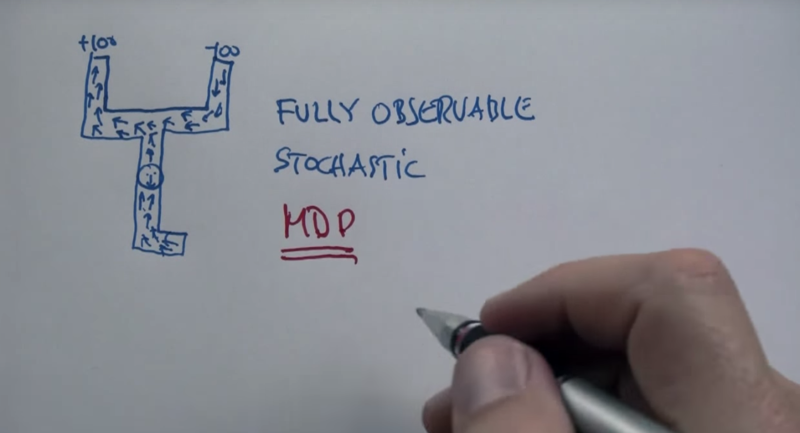 +100
-100
FULLY OBSERVABLE
STOCHASTIC
MDP